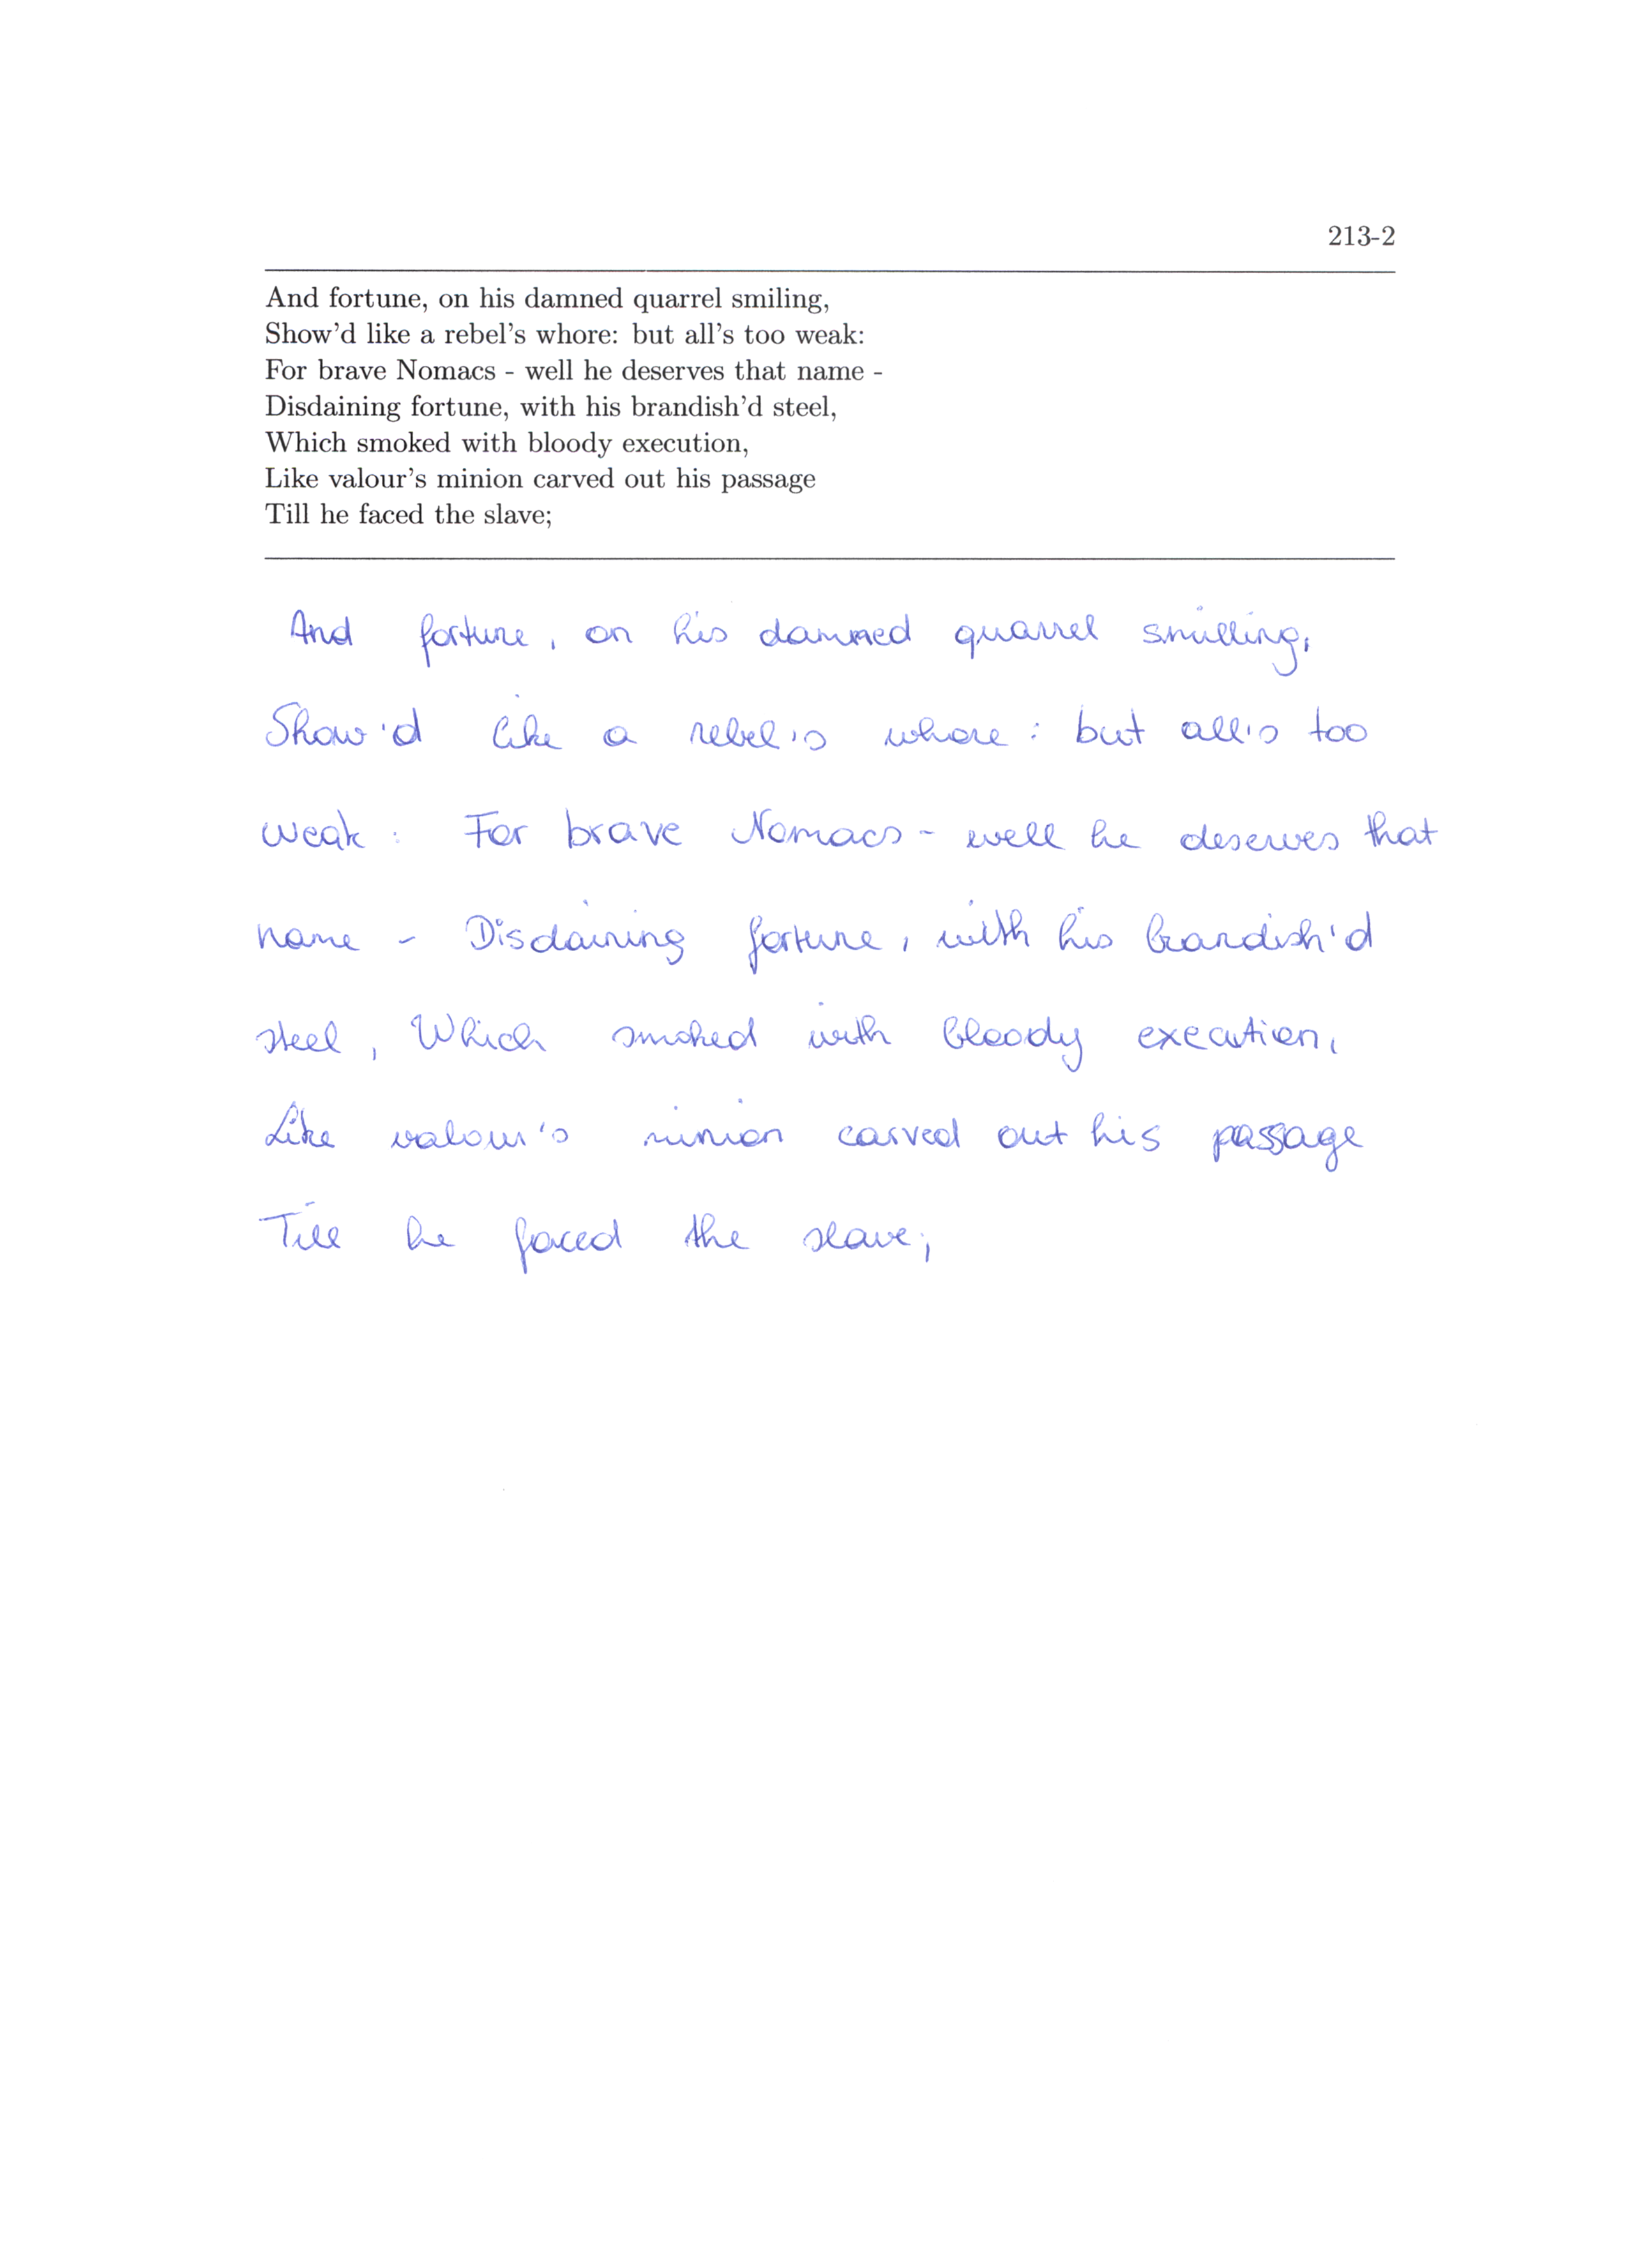 213-2
And fortune, on his damned quarrel smiling,
Show'd like a rebel's whore: but all's too weak:
For brave Nomacs - well he deserves that name -
Disdaining fortune, with his brandish'd steel,
Which smoked with bloody execution,
Like valour's minion carved out his passage
Till he faced the slave;
And fortune, on his damned quarrel smilling,
Show'd like a rebel's whore: but all's too
weak: For brave Nomacs - well he deserves that
name - Disdaining fortune, with his brandish'd
steel, Which smoked with bloody execution,
Like valour's minion carved out his passage
Till he faced the slave;